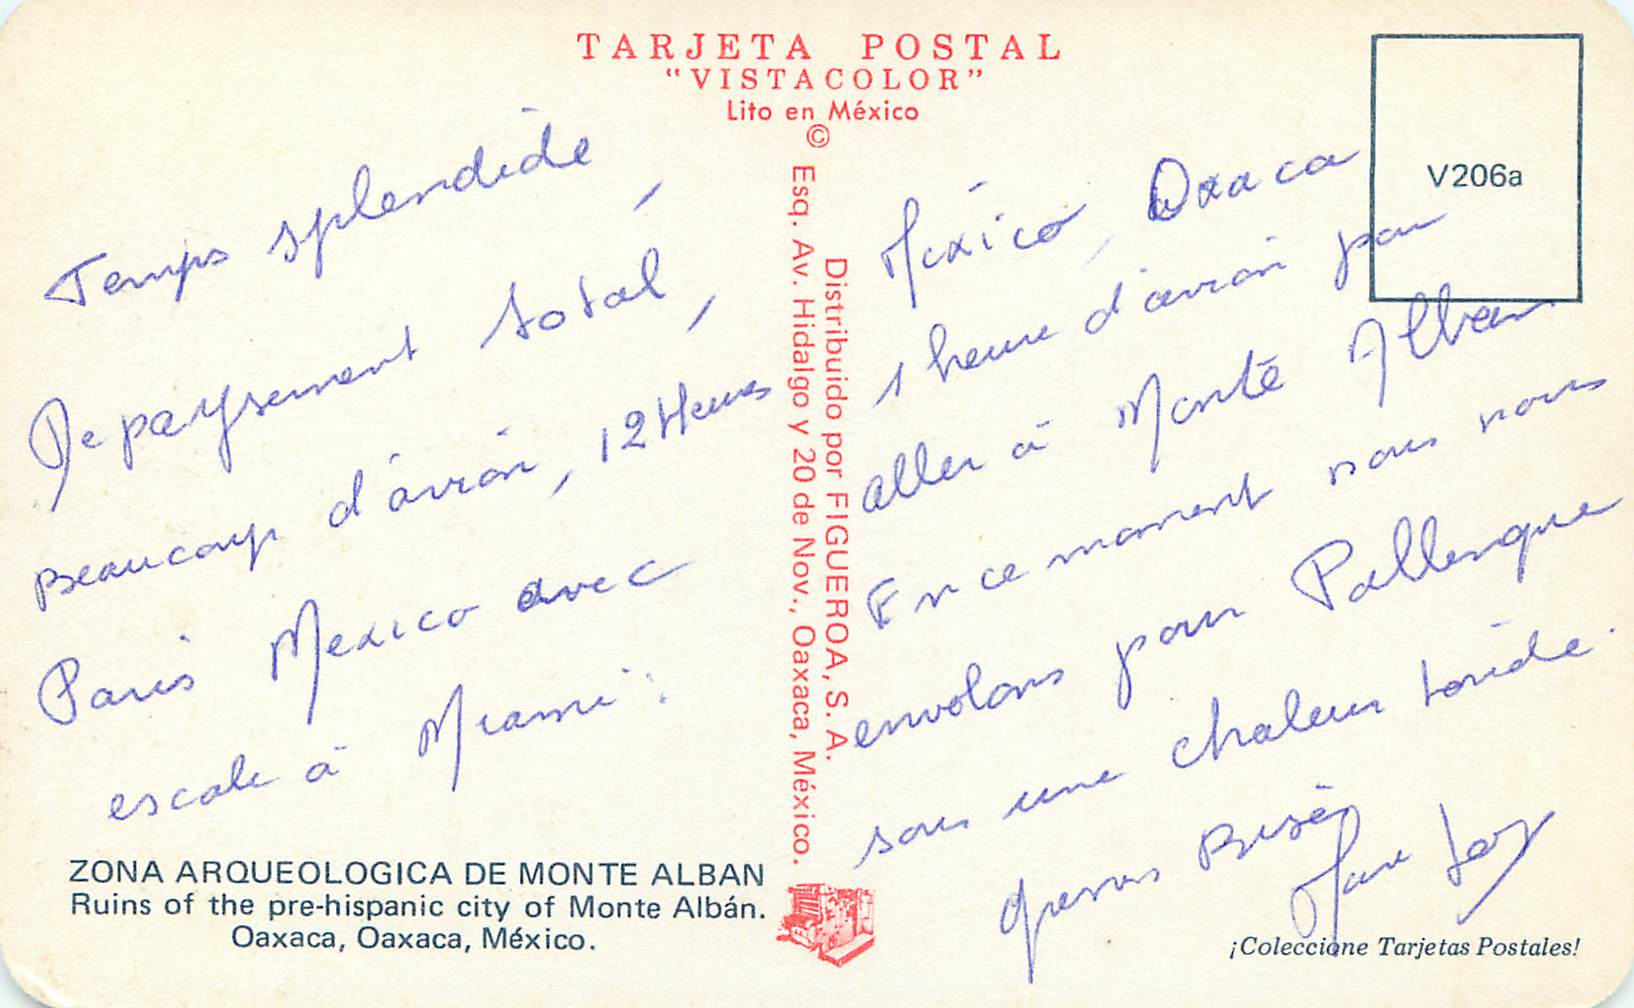 TARJETA POSTAL
"VISTACOLOR"
Lito en México
©
V206a
Temps splendide,
Depaysement total,
Beaucoup d'avion, 12 Heures
Paris Mexico avec
escale à Miami.
Esq. Av. Hidalgo y 20 de Nov., Oaxaca, México.
Distribuido por FIGUEROA, S. A.
Mexico, Oaxaca
1 heure d'avion pour
aller à Monté Alban
En ce moment nous nous
envolons pour Pallenque
sous une chaleur torride.
Bises
ZONA ARQUEOLOGICA DE MONTE ALBAN
Ruins of the pre-hispanic city of Monte Albán.
Oaxaca, Oaxaca, México.
¡Coleccione Tarjetas Postales!